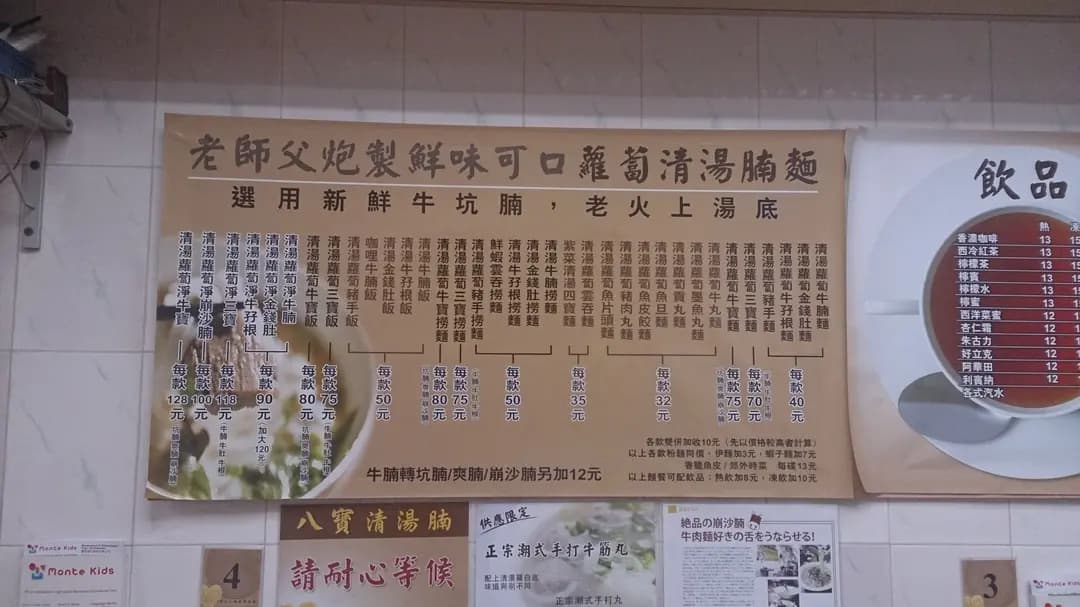 老師父炮製鮮味可口蘿蔔清湯腩麵
選用新鮮牛坑腩，老火上湯底
清湯蘿蔔牛腩麵
清湯蘿蔔金錢肚麵
清湯蘿蔔牛孖根麵
每款40元
清湯蘿蔔豬手麵
清湯蘿蔔三寶麵
每款70元
(牛腩牛肚牛根)
清湯蘿蔔牛寶麵
每款75元
清湯蘿蔔牛丸麵
清湯蘿蔔墨魚丸麵
清湯蘿蔔貢丸麵
清湯蘿蔔魚旦麵
清湯蘿蔔魚皮餃麵
清湯蘿蔔豬肉丸麵
清湯蘿蔔魚片頭麵
每款32元
清湯蘿蔔雲吞麵
紫菜清湯四寶麵
每款35元
清湯牛腩撈麵
清湯金錢肚撈麵
清湯牛孖根撈麵
鮮蝦雲吞撈麵
每款50元
清湯蘿蔔豬手撈麵
清湯蘿蔔三寶撈麵
每款75元
清湯蘿蔔牛寶撈麵
每款80元
清湯牛腩飯
清湯牛孖根飯
清湯金錢肚飯
咖哩牛腩飯
清湯蘿蔔豬手飯
每款50元
清湯蘿蔔三寶飯
每款75元
(牛腩牛肚牛根)
清湯蘿蔔牛寶飯
每款80元
清湯蘿蔔淨牛腩
清湯蘿蔔淨金錢肚
清湯蘿蔔淨牛孖根
每款90元
(加大120元)
清湯蘿蔔淨三寶
每款118元
(牛腩牛肚牛根)
清湯蘿蔔淨崩沙腩
每款100元
清湯蘿蔔淨牛寶
每款128元
牛腩轉坑腩/爽腩/崩沙腩另加12元
各款雙併加收10元（先以價格較高者計算）
以上各款粉麵同價，伊麵加3元，蝦子麵加7元
香脆魚皮/郊外時菜 每碟13元
以上麵餐可配飲品：熱飲加8元，凍飲加10元
飲品
熱
香濃咖啡 13 15
西冷紅茶 13 15
檸檬茶 13 15
檸賓 13
檸檬水 13
檸蜜 13
西洋菜蜜 12
杏仁霜 12
朱古力 12
好立克 12
阿華田 12
利賓納 12
各式汽水
八寶清湯腩
請耐心等候
供應限定
正宗潮式手打牛筋丸
配上清湯蘿白底
味道與別不同
正宗潮式手打丸
絶品の崩沙腩
牛肉麵好きの舌をうならせる!
Monte Kids
Monte Kids
4
3
Monte Kids